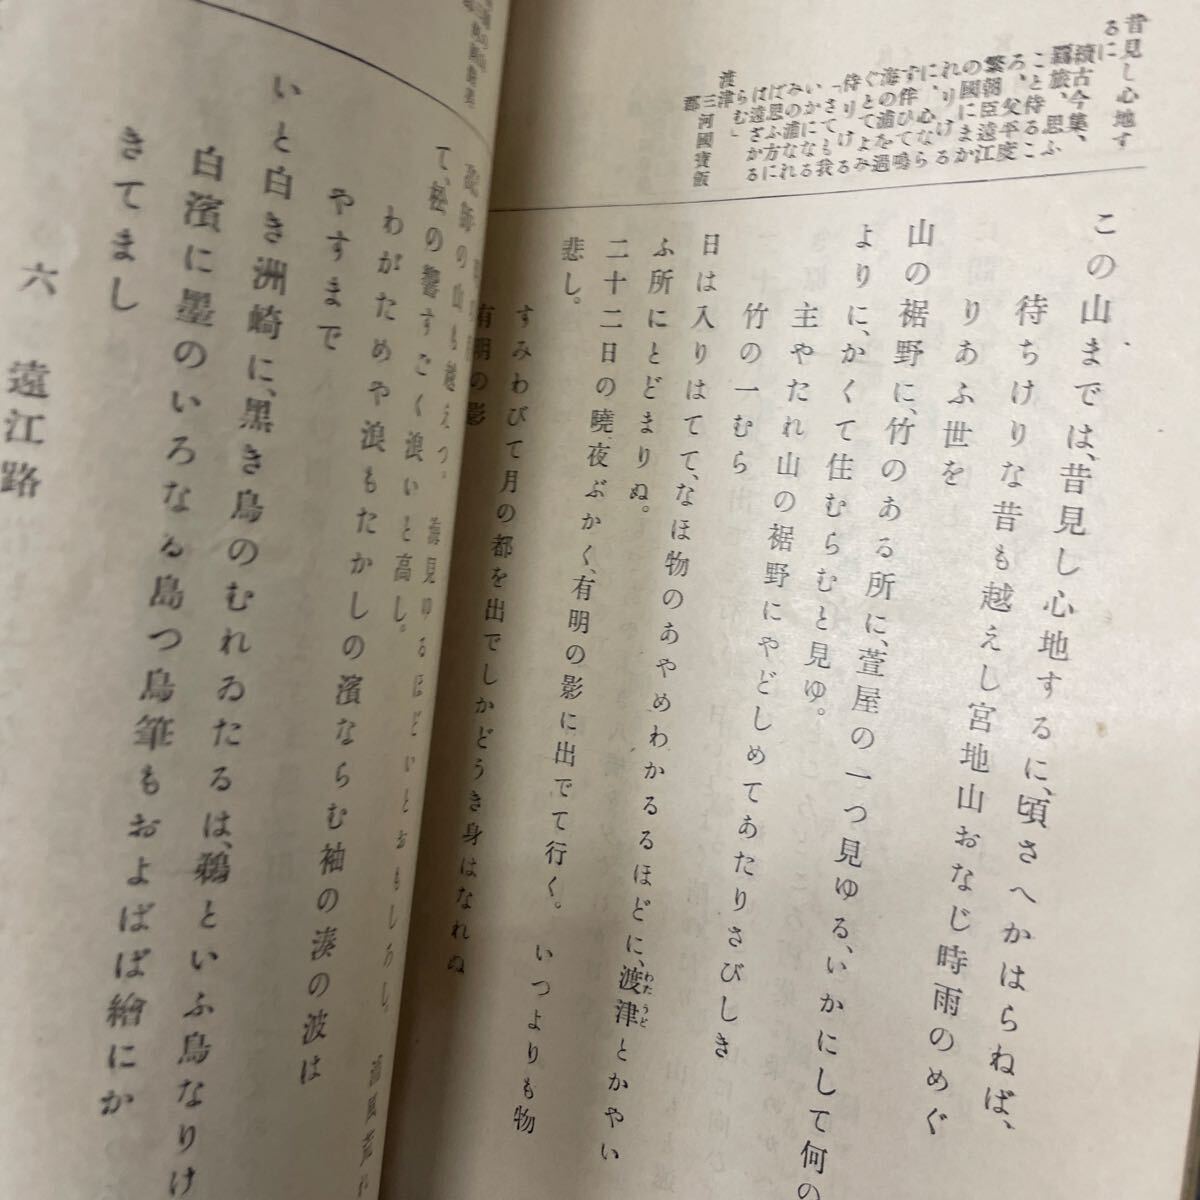 昔見し心地す
るに
續古今集、
羇旅、思ふ
こと侍るこ
ろ、父平度
繁朝臣遠江
の國にまか
れりける
に、心なら
ず伴ひて鳴
海の浦を過
ぐとてよみ
侍りける
「さても我
いかになる
みの浦なれ
ば思ふ方に
は遠ざかる
らむ」
渡津
三河國寶飯
郡
この山までは、昔見し心地するに、頃さへかはらねば、
待ちけりな昔も越えし宮地山おなじ時雨のめぐ
りあふ世を
山の裾野に、竹のある所に、萱屋の一つ見ゆる、いかにして何の
よりに、かくて住むらむと見ゆ。
主やたれ山の裾野にやどしめてあたりさびしき
竹の一むら
日は入りはてて、なほ物のあやめわかるるほどに、渡津とかやい
ふ所にとどまりぬ。
二十二日の曉、夜ぶかく、有明の影に出でて行く。 いつよりも物
悲し。
すみわびて月の都を出でしかどうき身はなれぬ
有明の影
の山も越えつ。 海見ゆるほどいとおもしろし。
て、松の響すごく浪いと高し。
わがためや浪もたかしの濱ならむ袖の湊の波は
やすまで
いと白き洲崎に、黒き鳥のむれゐたるは、鵜といふ鳥なりけ
白濱に墨のいろなる島つ鳥筆もおよばば繪にか
きてまし
六 遠江路